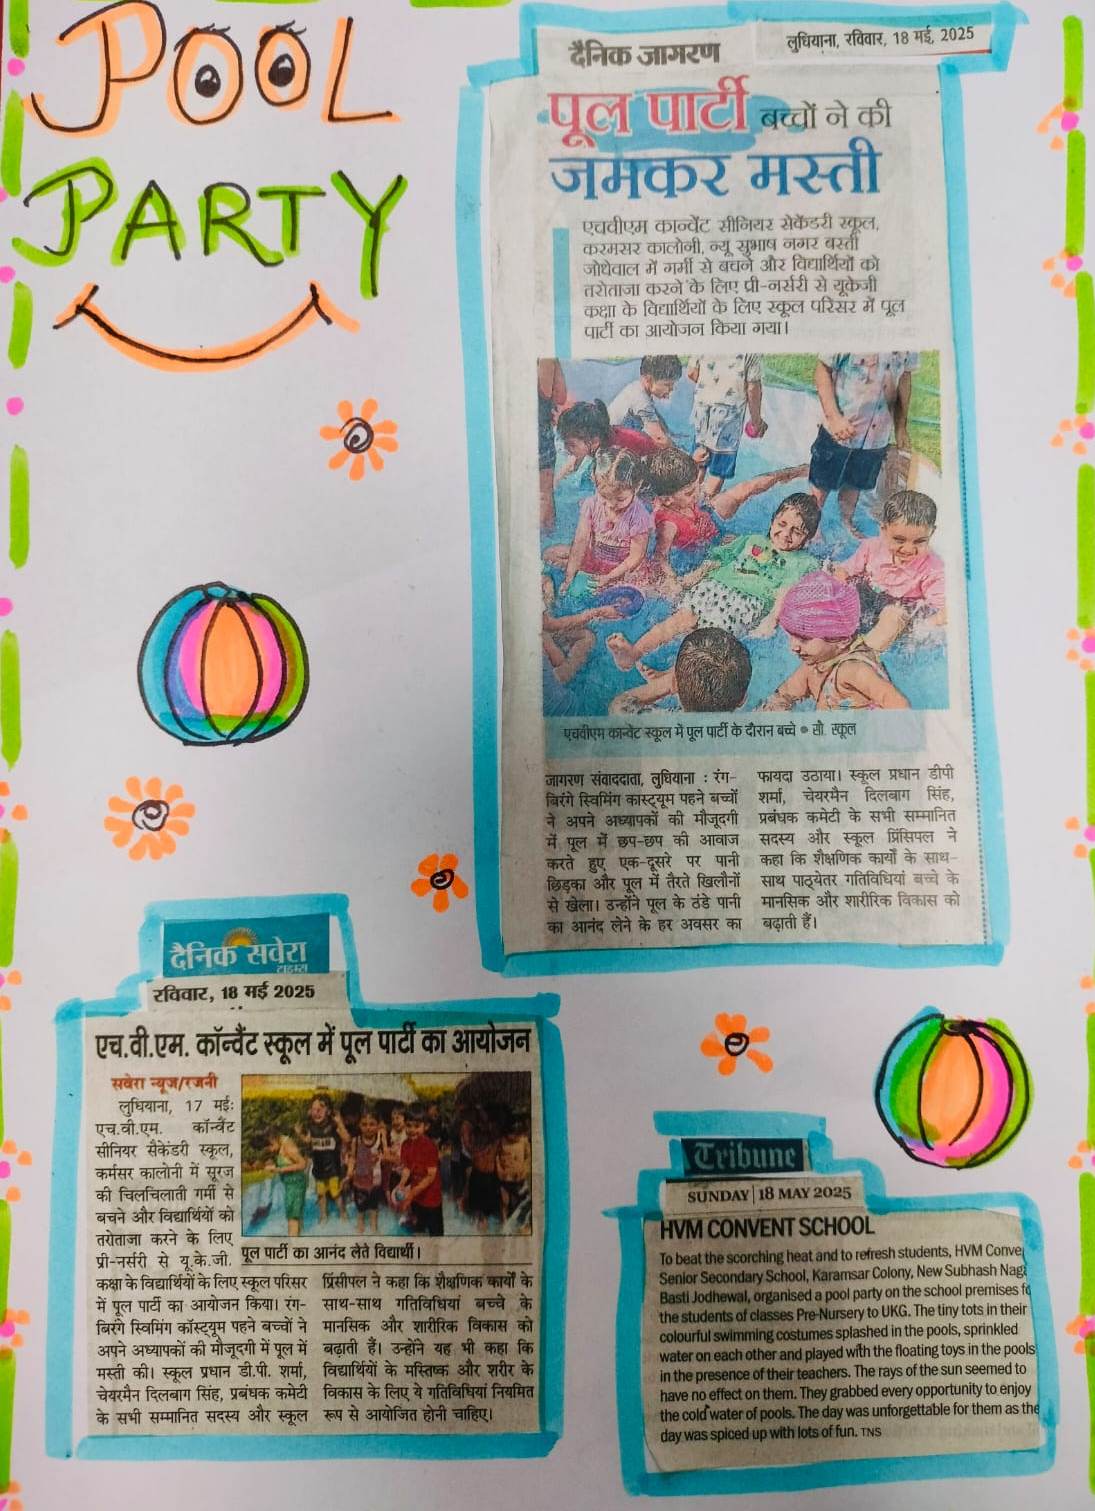 POOL
PARTY
दैनिक जागरण
लुधियाना, रविवार, 18 मई, 2025
पूल पार्टी बच्चों ने की
जमकर मस्ती
एचवीएम कान्वेंट सीनियर सेकेंडरी स्कूल,
करमसर कालोनी, न्यू सुभाष नगर बस्ती
जोधेवाल में गर्मी से बचने और विद्यार्थियों को
तरोताजा करने के लिए प्री-नर्सरी से यूकेजी
कक्षा के विद्यार्थियों के लिए स्कूल परिसर में पूल
पार्टी का आयोजन किया गया।
एचवीएम कान्वेंट स्कूल में पूल पार्टी के दौरान बच्चे ● सौ. स्कूल
जागरण संवाददाता, लुधियाना : रंग-
बिरंगे स्विमिंग कास्ट्यूम पहने बच्चों
ने अपने अध्यापकों की मौजूदगी
में पूल में छप-छप की आवाज
करते हुए एक-दूसरे पर पानी
छिड़का और पूल में तैरते खिलौनों
से खेला। उन्होंने पूल के ठंडे पानी
का आनंद लेने के हर अवसर का
फायदा उठाया। स्कूल प्रधान डीपी
शर्मा, चेयरमैन दिलबाग सिंह,
प्रबंधक कमेटी के सभी सम्मानित
सदस्य और स्कूल प्रिंसिपल ने
कहा कि शैक्षणिक कार्यों के साथ-
साथ पाठ्येतर गतिविधियां बच्चे के
मानसिक और शारीरिक विकास को
बढ़ाती हैं।
दैनिक सवेरा
टाइम्स
रविवार, 18 मई 2025
एच.वी.एम. कॉन्वैंट स्कूल में पूल पार्टी का आयोजन
सवेरा न्यूज/रजनी
लुधियाना, 17 मई:
एच.वी.एम. कॉन्वैंट
सीनियर सैकेंडरी स्कूल,
कर्मसर कालोनी में सूरज
की चिलचिलाती गर्मी से
बचने और विद्यार्थियों को
तरोताजा करने के लिए
प्री-नर्सरी से यू.के.जी.
पूल पार्टी का आनंद लेते विद्यार्थी।
कक्षा के विद्यार्थियों के लिए स्कूल परिसर
में पूल पार्टी का आयोजन किया। रंग-
बिरंगे स्विमिंग कॉस्ट्यूम पहने बच्चों ने
अपने अध्यापकों की मौजूदगी में पूल में
मस्ती की। स्कूल प्रधान डी.पी. शर्मा,
चेयरमैन दिलबाग सिंह, प्रबंधक कमेटी
के सभी सम्मानित सदस्य और स्कूल
प्रिंसीपल ने कहा कि शैक्षणिक कार्यों के
साथ-साथ गतिविधियां बच्चे के
मानसिक और शारीरिक विकास को
बढ़ाती हैं। उन्होंने यह भी कहा कि
विद्यार्थियों के मस्तिष्क और शरीर के
विकास के लिए ये गतिविधियां नियमित
रूप से आयोजित होनी चाहिए।
Tribune
SUNDAY | 18 MAY 2025
HVM CONVENT SCHOOL
To beat the scorching heat and to refresh students, HVM Conve
Senior Secondary School, Karamsar Colony, New Subhash Naga
Basti Jodhewal, organised a pool party on the school premises fo
the students of classes Pre-Nursery to UKG. The tiny tots in their
colourful swimming costumes splashed in the pools, sprinkled
water on each other and played with the floating toys in the pools
in the presence of their teachers. The rays of the sun seemed to
have no effect on them. They grabbed every opportunity to enjoy
the cold water of pools. The day was unforgettable for them as the
day was spiced up with lots of fun. TNS